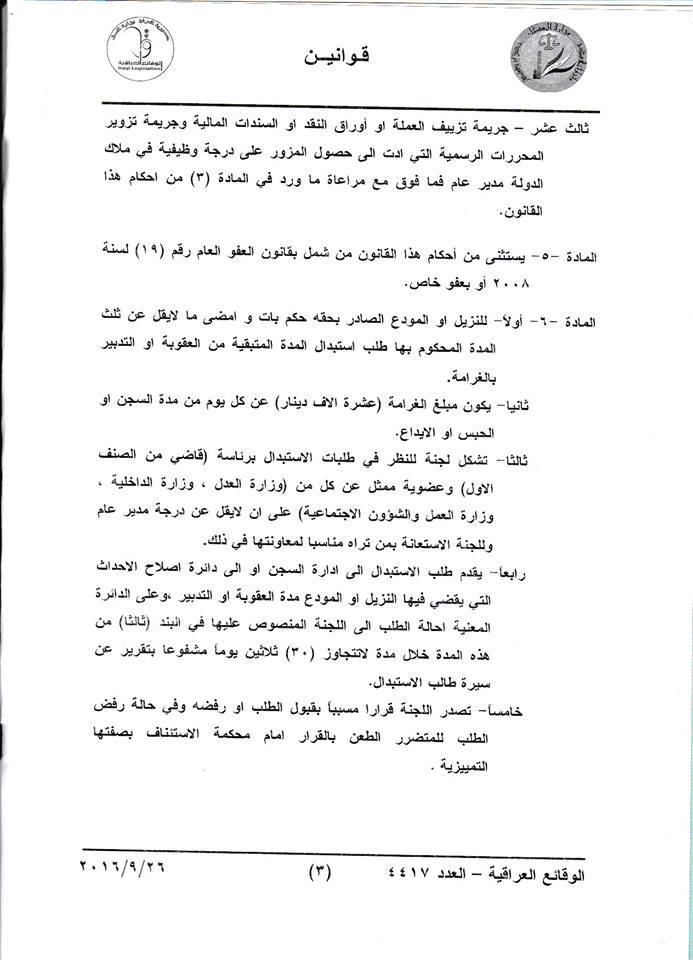 قوانين
الوقائع العراقية
Iraqi Legislation
ثالث عشر – جريمة تزييف العملة او أوراق النقد او السندات المالية وجريمة تزوير
المحررات الرسمية التي ادت الى حصول المزور على درجة وظيفية في ملاك
الدولة مدير عام فما فوق مع مراعاة ما ورد في المادة (٣) من احكام هذا
القانون.
المادة -٥- يستثنى من أحكام هذا القانون من شمل بقانون العفو العام رقم (١٩) لسنة
٢٠٠٨ أو بعفو خاص.
المادة -٦- أولاً- للنزيل او المودع الصادر بحقه حكم بات و امضى ما لايقل عن ثلث
المدة المحكوم بها طلب استبدال المدة المتبقية من العقوبة او التدبير
بالغرامة.
ثانيا- يكون مبلغ الغرامة (عشرة الاف دينار) عن كل يوم من مدة السجن او
الحبس او الايداع.
ثالثا- تشكل لجنة للنظر في طلبات الاستبدال برئاسة (قاضي من الصنف
الاول) وعضوية ممثل عن كل من (وزارة العدل ، وزارة الداخلية ،
وزارة العمل والشؤون الاجتماعية) على ان لايقل عن درجة مدير عام
وللجنة الاستعانة بمن تراه مناسبا لمعاونتها في ذلك.
رابعا- يقدم طلب الاستبدال الى ادارة السجن او الى دائرة اصلاح الاحداث
التي يقضي فيها النزيل او المودع مدة العقوبة او التدبير ،وعلى الدائرة
المعنية احالة الطلب الى اللجنة المنصوص عليها في البند (ثالثا) من
هذه المدة خلال مدة لاتتجاوز (٣٠) ثلاثين يوماً مشفوعا بتقرير عن
سيرة طالب الاستبدال.
خامساً- تصدر اللجنة قرارا مسبباً بقبول الطلب او رفضه وفي حالة رفض
الطلب للمتضرر الطعن بالقرار امام محكمة الاستئناف بصفتها
التمييزية .
الوقائع العراقية – العدد ٤٤١٧ (٣) ٢٠١٦/٩/٢٦